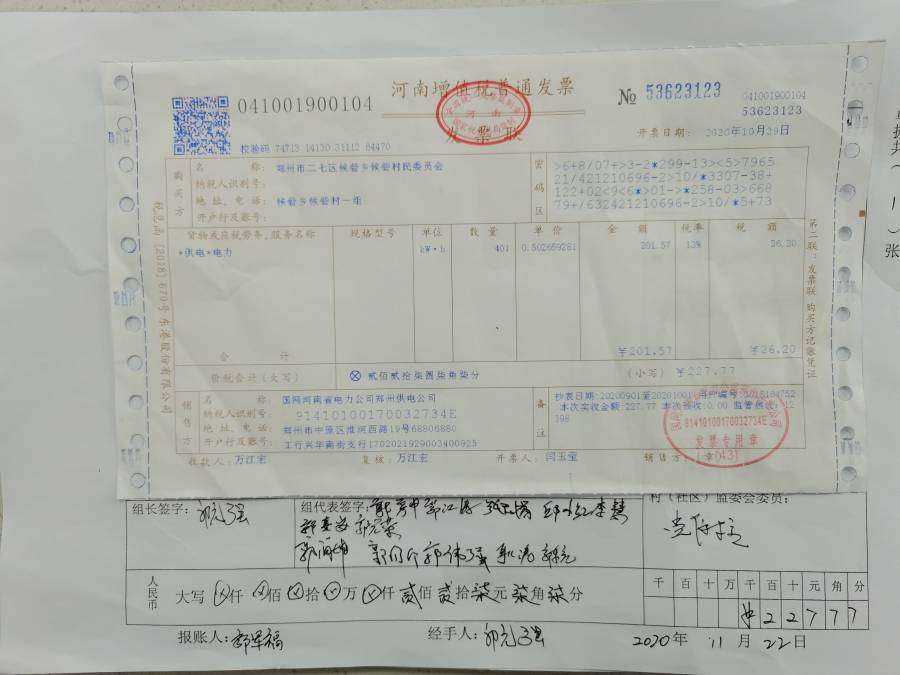 河南增值税普通发票
041001900104
№ 53623123
041001900104
53623123
发票联
开票日期: 2020年10月29日
校验码 74713 14130 31112 64470
购买方
名 称: 郑州市二七区候砦乡候砦村民委员会
纳税人识别号:
地 址、电 话: 候砦乡候砦村一组
开户行及账号:
密码区
>6+8/07+>3-2*299-13><5>7965
21/421210696-2>10/*3307-38+
122+02<9<6*>01->*258-03>668
79+/632421210696-2>10/*5+73
货物或应税劳务、服务名称 规格型号 单位 数 量 单 价 金 额 税率 税 额
*供电*电力 kW·h 401 0.502659281 201.57 13% 26.20
合 计 ¥201.57 ¥26.20
价税合计(大写) ⊗ 贰佰贰拾柒圆柒角柒分 (小写) ¥227.77
销售方
名 称: 国网河南省电力公司郑州供电公司
纳税人识别号: 91410100170032734E
地 址、电 话: 郑州市中原区淮河西路19号68806880
开户行及账号: 工行兴华南街支行1702021929003400925
备注
抄表日期:20200901至20201001 用户编号:
本次实收金额:227.77 本次预收:0.00 监管热线:12
398
91410100170032734E
发票专用章
收款人: 万江宏 复核: 万江宏 开票人: 闫玉莹 销售方:(章)
税总函〔2018〕670号东港股份有限公司
第二联:发票联 购买方记账凭证
组长签字:
组代表签字:
村(社区)监委会委员:
人民币 大写 ⊗仟 ⊗佰 ⊗拾 ⊗万 ⊗仟 贰佰 贰拾 柒元 柒角 柒分
千 百 十 万 千 百 十 元 角 分
¥ 2 2 7 7 7
报账人: 经手人: 2020年 11月 22日